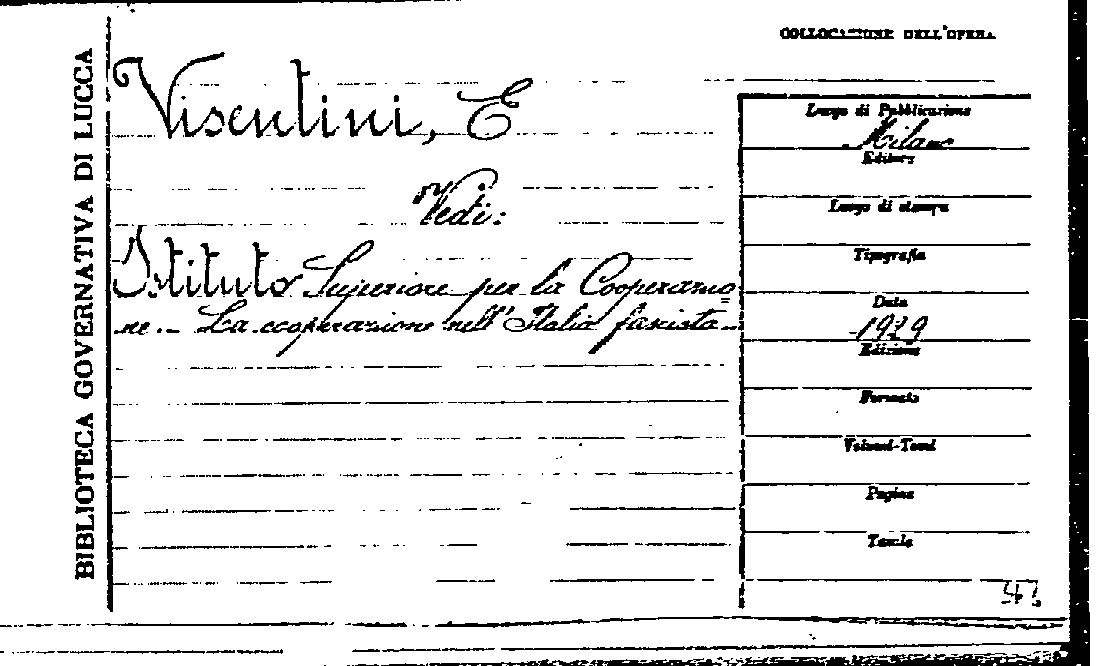 COLLOCAZIONE DELL'OPERA
BIBLIOTECA GOVERNATIVA DI LUCCA
Visentini, E
Vedi:
Istituto Superiore per la Cooperazio=
ne.- La cooperazione nell'Italia fascista.-
Luogo di Pubblicazione
Milano
Editore
Luogo di stampa
Tipografia
Data
1929
Edizione
Formato
Volumi-Tomi
Pagine
Tavole